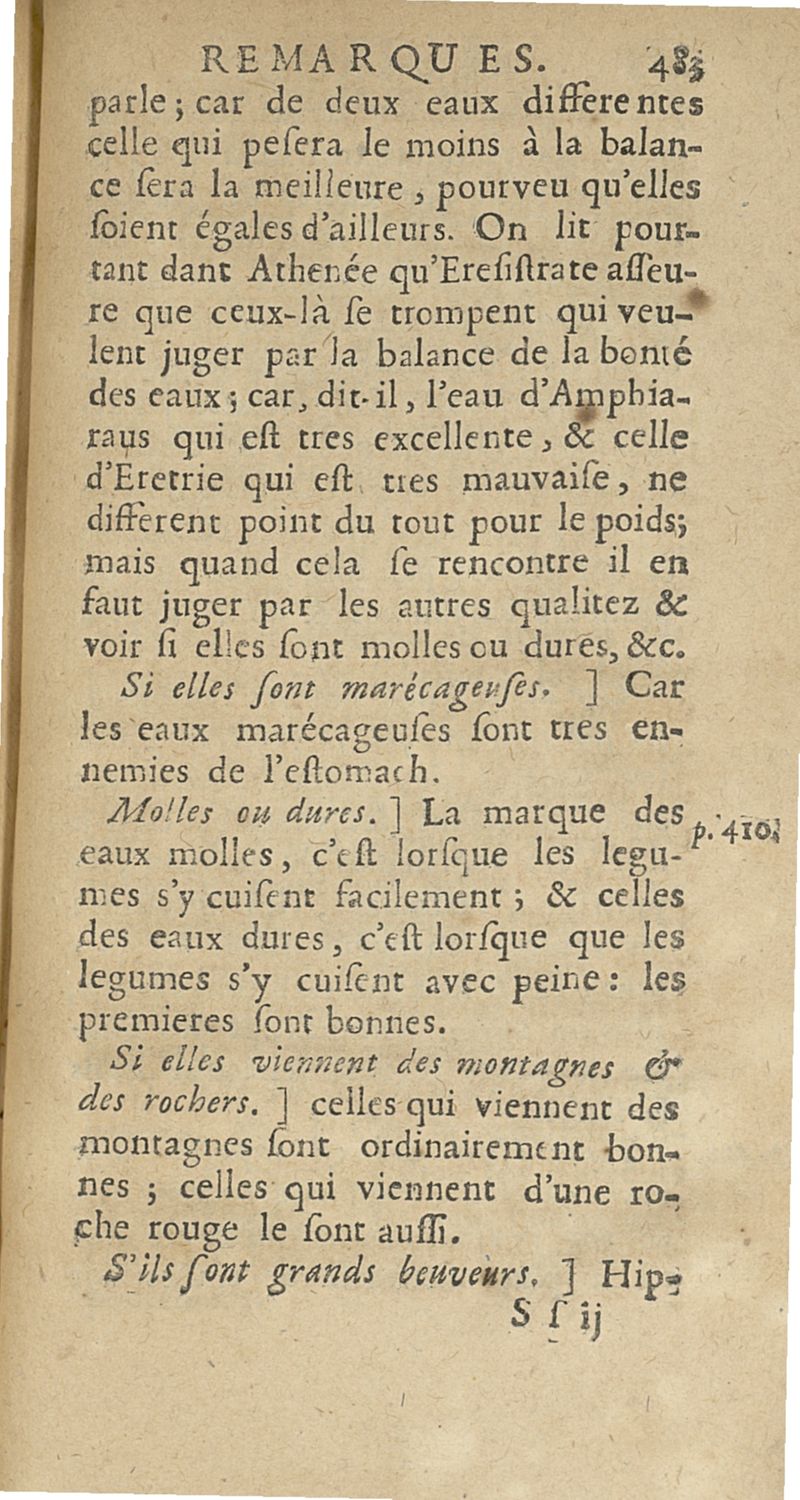 REMARQUES. 483
parle ; car de deux eaux differentes
celle qui peſera le moins à la balan-
ce ſera la meilleure, pourveu qu'elles
ſoient égales d'ailleurs. On lit pour-
tant dant Athenée qu'Ereſiſtrate aſſeu-
re que ceux-là ſe trompent qui veu-
lent juger par la balance de la bonté
des eaux ; car, dit-il, l'eau d'Amphia-
raus qui eſt tres excellente, & celle
d'Eretrie qui eſt tres mauvaiſe, ne
different point du tout pour le poids;
mais quand cela ſe rencontre il en
faut juger par les autres qualitez &
voir ſi elles ſont molles ou dures, &c.
Si elles ſont marécageuſes. ] Car
les eaux marécageuſes ſont tres en-
nemies de l'eſtomach.
Molles ou dures. ] La marque des
p. 410.
eaux molles, c'eſt lorſque les legu-
mes s'y cuiſent facilement ; & celles
des eaux dures, c'eſt lorſque que les
legumes s'y cuiſent avec peine : les
premieres ſont bonnes.
Si elles viennent des montagnes &
des rochers. ] celles qui viennent des
montagnes ſont ordinairement bon-
nes ; celles qui viennent d'une ro-
che rouge le ſont auſſi.
S'ils ſont grands beuveurs. ] Hip-
S ſ ij